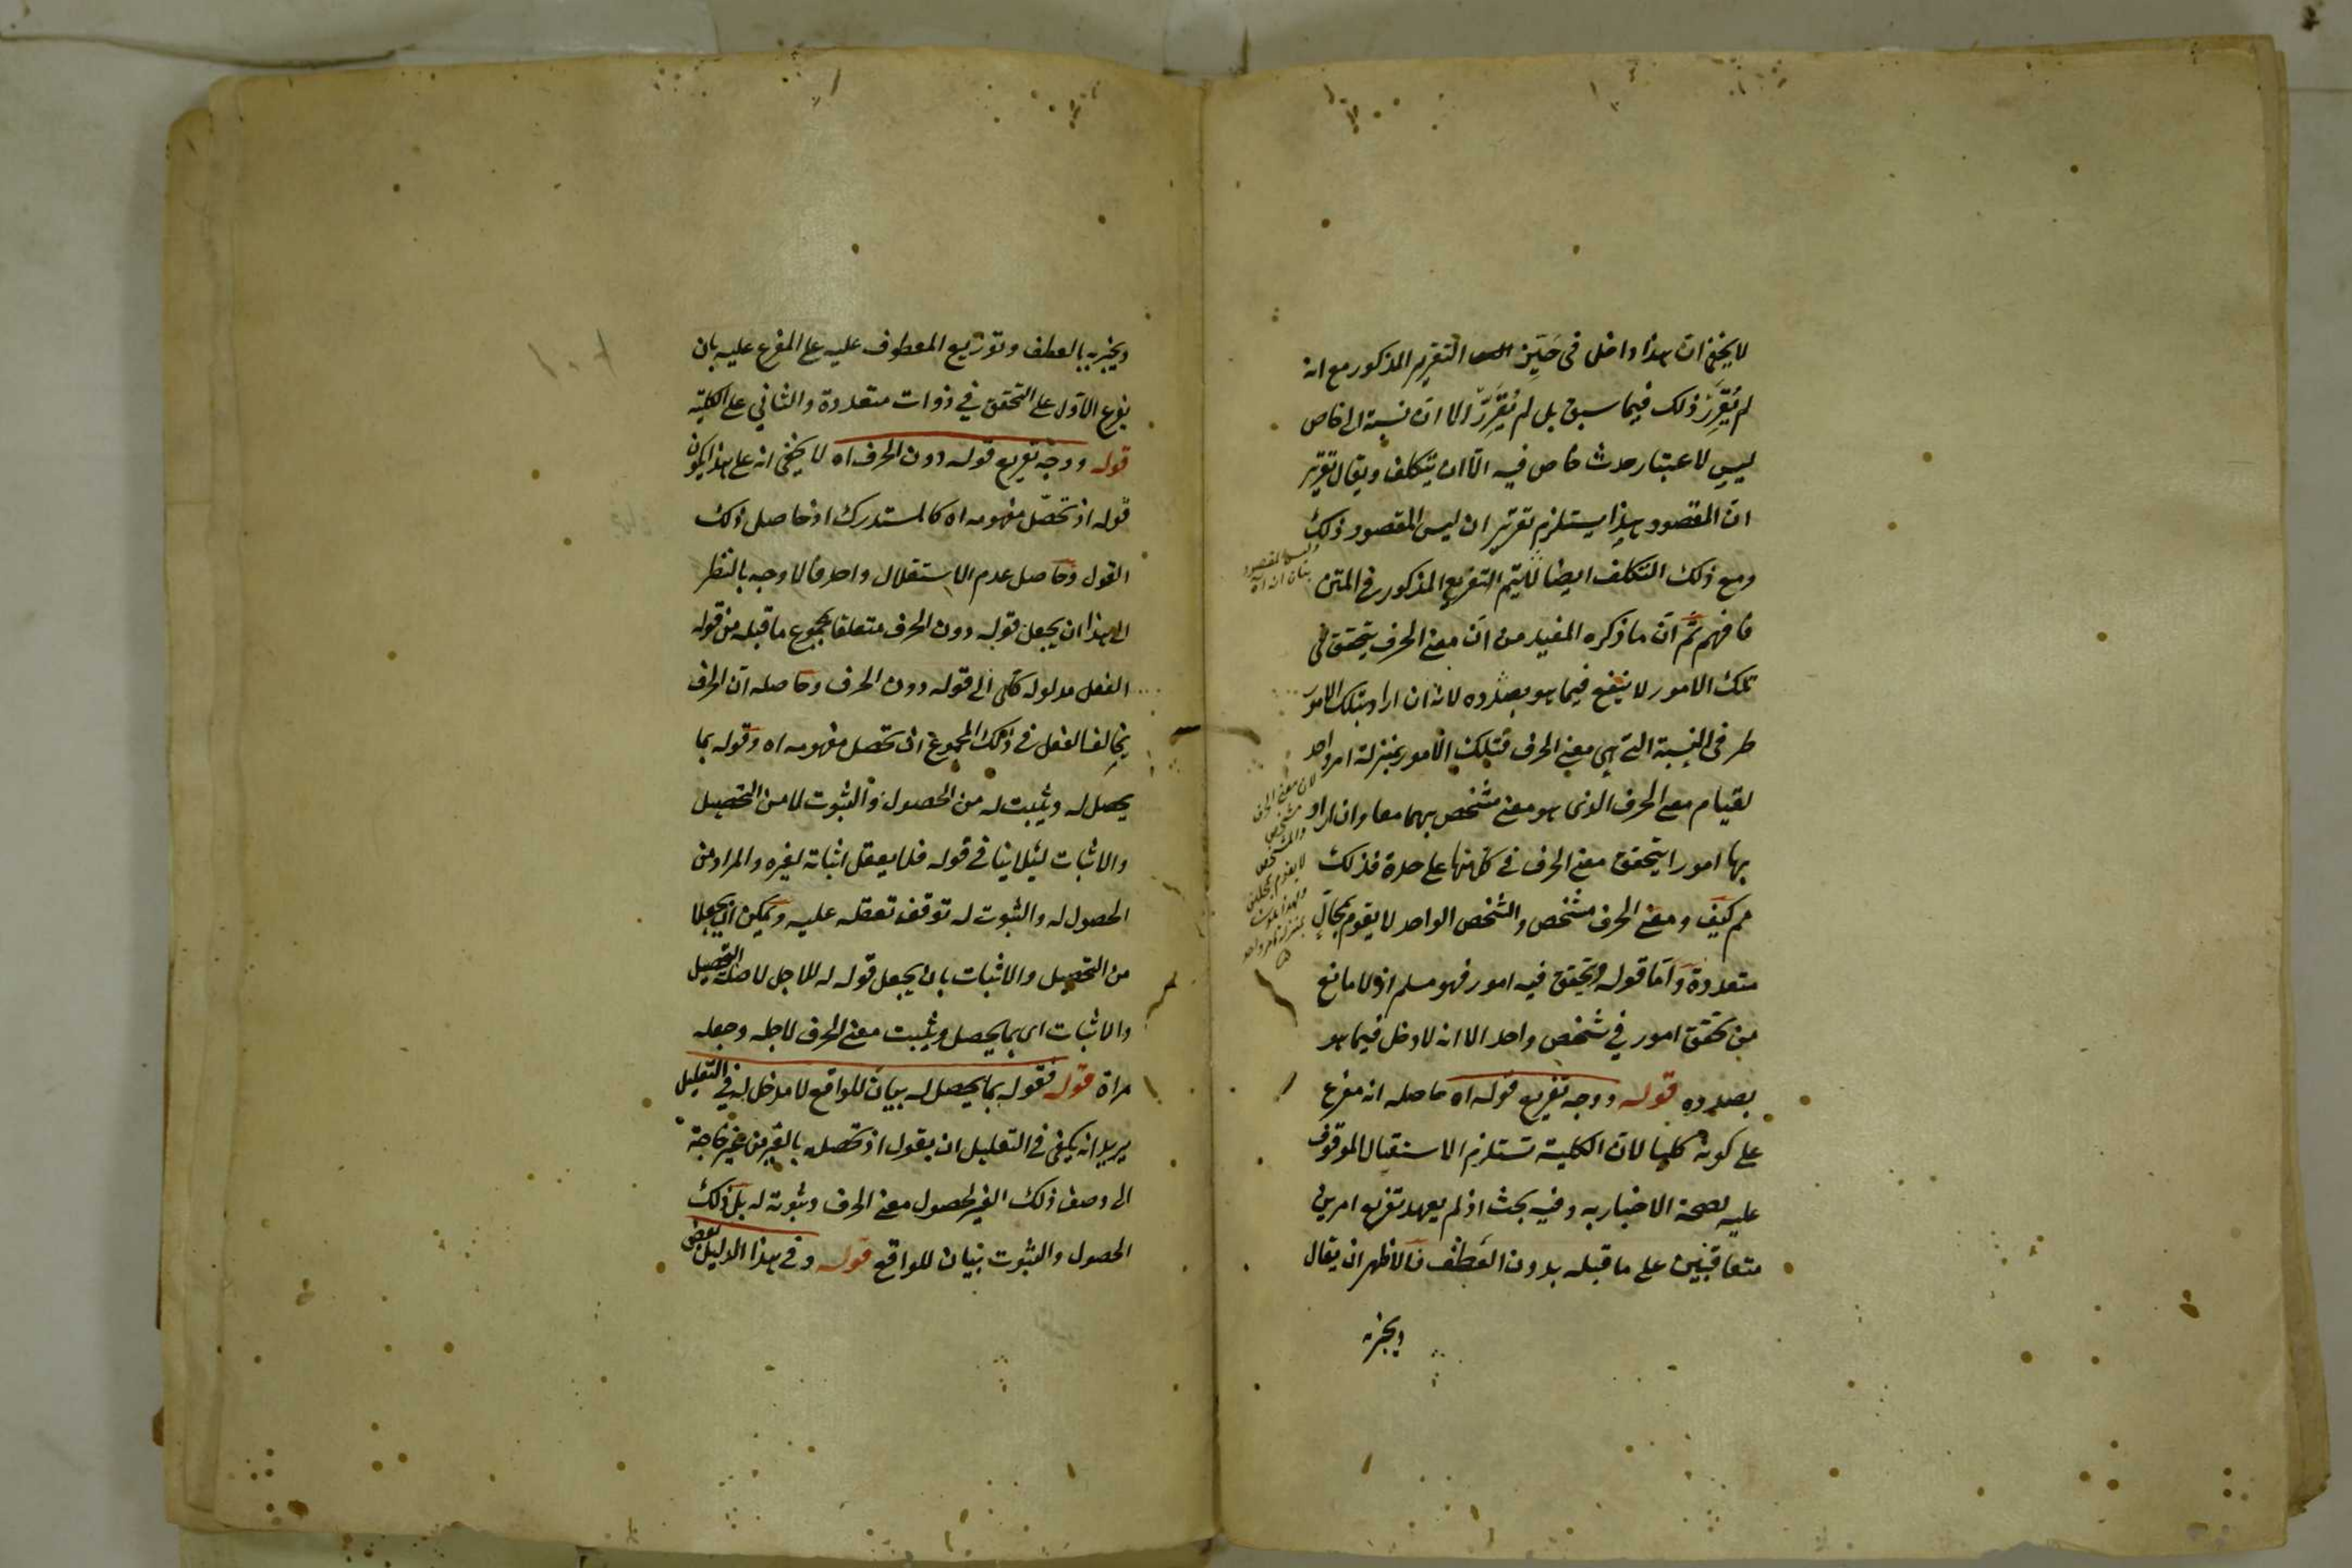 لا يخفى ان هذا داخل فى حَيِّز التقرير المذكور مع انه
لم يُقَرِّر ذلك فيما سبق بل لم يُقَرِّر الا ان نسبته الى خاص
ليس لاعتبار حدث خاص فيه الّا ان يتكلف ويقال تقرير
انّ المقصود هذا يستلزم تقرير ان ليس المقصود ذلك
ومع ذلك التكلف ايضا لا يتم التفريع المذكور فى المتن
فافهم ثمّ انّ ما ذكره المفيد من انّ معنى الحرف يتحقق فى
تلك الامور لا ينفع فيما هو بصدده لانه ان اراد بتلك الامور
طرفى النسبة التى هى معنى الحرف فتلك الامور بمنزلة امر واحد
لقيام معنى الحرف الذى هو معنى مشخص بهما معا وان اراد
بها امورا يتحقق معنى الحرف فى كل منها على حدة فذلك
مم كيف ومعنى الحرف مشخص والشخص الواحد لا يقوم بمحالّ
متعددة وامّا قوله ويتحقق فيه امور فهو مسلم اذ لا مانع
من تحقق امور فى شخص واحد الا انه لا دخل فيما هو
بصدده قوله ووجه تفريع قوله اه حاصله انه مفرع
على كونه كليا لان الكلية تستلزم الاستقبال الموقوف
عليه لصحة الاخبار به وفيه بحث اذ لم يعهد تفريع امرين
متعاقبين على ما قبله بدون العطف فالاظهر ان يقال
وليس المقصود
بيان ان
لان معنى الحرف
مشخص
والمشخص
لا يقوم بمحلين
بمنزلة امر واحد
ويخبر به
ويخبر به بالعطف وتوزيع المعطوف عليه على المفرع عليه بان
يفرع الاول على التحقق فى ذوات متعددة والثانى على الكلية
قوله ووجه تفريع قوله دون الحرف اه لا يخفى انه على هذا يكون
قوله اذ تحصّل مفهومه اه كالمستدرك اذ حاصل ذلك
القول وحاصل عدم الاستقلال واحد فالاوجه بالنظر
الى هذا ان يجعل قوله دون الحرف متعلقا بمجموع ما قبله من قوله
الفعل مدلوله كلى الى قوله دون الحرف وحاصله ان الحرف
يخالف الفعل فى ذلك المجموع اذ تحصل مفهومه اه وقوله بما
يحصل له ويثبت له من الحصول والثبوت لا من التحصيل
والاثبات لئلا ينافى قوله فلا يعقل اثباته لغيره والمراد من
الحصول له والثبوت له توقف تعقله عليه ويمكن ان يجعلا
من التحصيل والاثبات بان يجعل قوله له للاجل لا صلة التحصيل
والاثبات اى بما يحصل ويثبت معنى الحرف لاجله وجعله
مراة قوله فقوله بما يحصل له بيان للواقع لا مدخل له فى التعليل
يريد انه يكفى فى التعليل ان يقول اذ تحصله بالغير من غير حاجة
الى وصف ذلك الغير بحصول معنى الحرف وثبوته له بل ذلك
الحصول والثبوت بيان للواقع قوله وفى هذا الدليل بعض